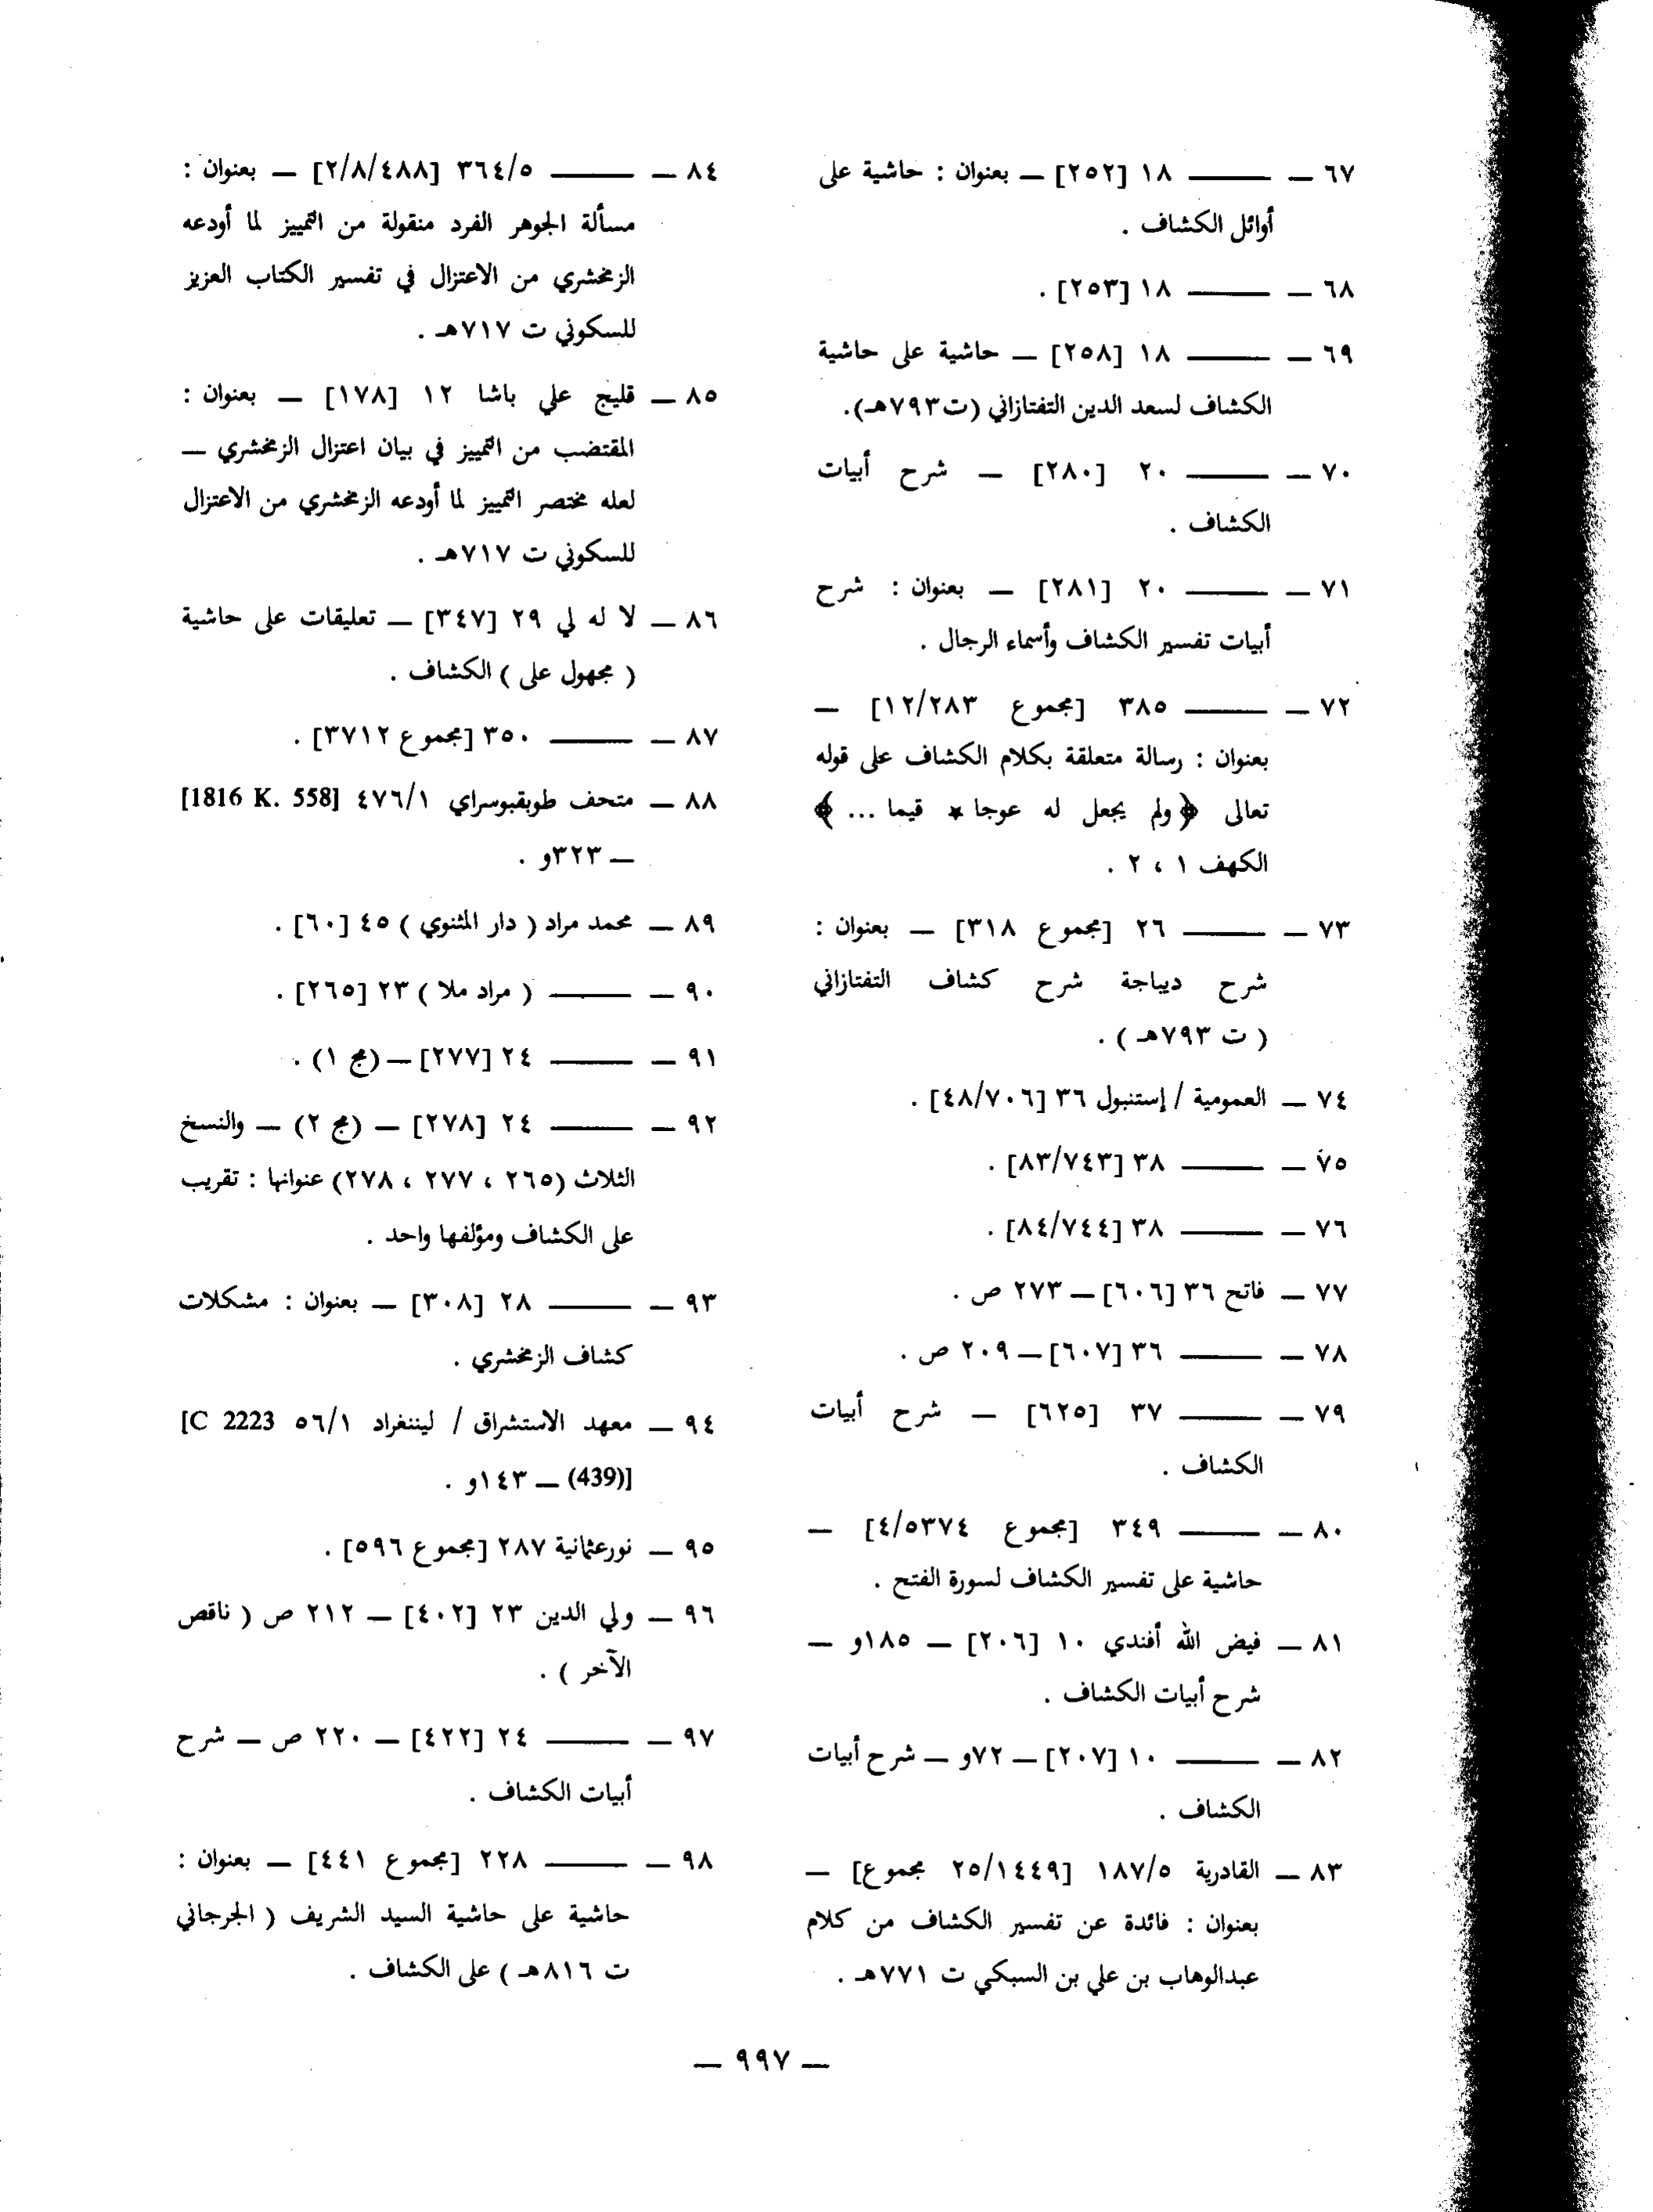 ٦٧ — ——— ١٨ [٢٥٢] — بعنوان : حاشية على
أوائل الكشاف .
٦٨ — ——— ١٨ [٢٥٣] .
٦٩ — ——— ١٨ [٢٥٨] — حاشية على حاشية
الكشاف لسعد الدين التفتازاني (ت٧٩٣هـ).
٧٠ — ——— ٢٠ [٢٨٠] — شرح أبيات
الكشاف .
٧١ — ——— ٢٠ [٢٨١] — بعنوان : شرح
أبيات تفسير الكشاف وأسماء الرجال .
٧٢ — ——— ٣٨٥ [مجموع ١٢/٢٨٣] —
بعنوان : رسالة متعلقة بكلام الكشاف على قوله
تعالى ﴿ولم يجعل له عوجا * قيما ... ﴾
الكهف ١ ، ٢ .
٧٣ — ——— ٢٦ [مجموع ٣١٨] — بعنوان :
شرح ديباجة شرح كشاف التفتازاني
( ت ٧٩٣هـ ) .
٧٤ — العمومية / إستنبول ٣٦ [٤٨/٧٠٦] .
٧٥ — ——— ٣٨ [٨٣/٧٤٣] .
٧٦ — ——— ٣٨ [٨٤/٧٤٤] .
٧٧ — فاتح ٣٦ [٦٠٦] — ٢٧٣ ص .
٧٨ — ——— ٣٦ [٦٠٧] — ٢٠٩ ص .
٧٩ — ——— ٣٧ [٦٢٥] — شرح أبيات
الكشاف .
٨٠ — ——— ٣٤٩ [مجموع ٤/٥٣٧٤] —
حاشية على تفسير الكشاف لسورة الفتح .
٨١ — فيض الله أفندي ١٠ [٢٠٦] — ١٨٥و —
شرح أبيات الكشاف .
٨٢ — ——— ١٠ [٢٠٧] — ٧٢و — شرح أبيات
الكشاف .
٨٣ — القادرية ١٨٧/٥ [٢٥/١٤٤٩ مجموع] —
بعنوان : فائدة عن تفسير الكشاف من كلام
عبدالوهاب بن علي بن السبكي ت ٧٧١هـ .
٨٤ — ——— ٣٦٤/٥ [٢/٨/٤٨٨] — بعنوان :
مسألة الجوهر الفرد منقولة من التمييز لما أودعه
الزمخشري من الاعتزال في تفسير الكتاب العزيز
للسكوني ت ٧١٧هـ .
٨٥ — قليج علي باشا ١٢ [١٧٨] — بعنوان :
المقتضب من التمييز في بيان اعتزال الزمخشري —
لعله مختصر التمييز لما أودعه الزمخشري من الاعتزال
للسكوني ت ٧١٧هـ .
٨٦ — لا له لي ٢٩ [٣٤٧] — تعليقات على حاشية
( مجهول على ) الكشاف .
٨٧ — ——— ٣٥٠ [مجموع ٣٧١٢] .
٨٨ — متحف طوبقبوسراي ٤٧٦/١ [1816 K. 558]
— ٣٢٣و .
٨٩ — محمد مراد ( دار المثنوي ) ٤٥ [٦٠] .
٩٠ — ——— ( مراد ملا ) ٢٣ [٢٦٥] .
٩١ — ——— ٢٤ [٢٧٧] — (مج ١) .
٩٢ — ——— ٢٤ [٢٧٨] — (مج ٢) — والنسخ
الثلاث (٢٦٥ ، ٢٧٧ ، ٢٧٨) عنوانها : تقريب
على الكشاف ومؤلفها واحد .
٩٣ — ——— ٢٨ [٣٠٨] — بعنوان : مشكلات
كشاف الزمخشري .
٩٤ — معهد الاستشراق / ليننغراد ٥٦/١ [C 2223
(439)] — ١٤٣و .
٩٥ — نورعثمانية ٢٨٧ [مجموع ٥٩٦] .
٩٦ — ولي الدين ٢٣ [٤٠٢] — ٢١٢ ص ( ناقص
الآخر ) .
٩٧ — ——— ٢٤ [٤٢٢] — ٢٢٠ ص — شرح
أبيات الكشاف .
٩٨ — ——— ٢٢٨ [مجموع ٤٤١] — بعنوان :
حاشية على حاشية السيد الشريف ( الجرجاني
ت ٨١٦هـ ) على الكشاف .
— ٩٩٧ —